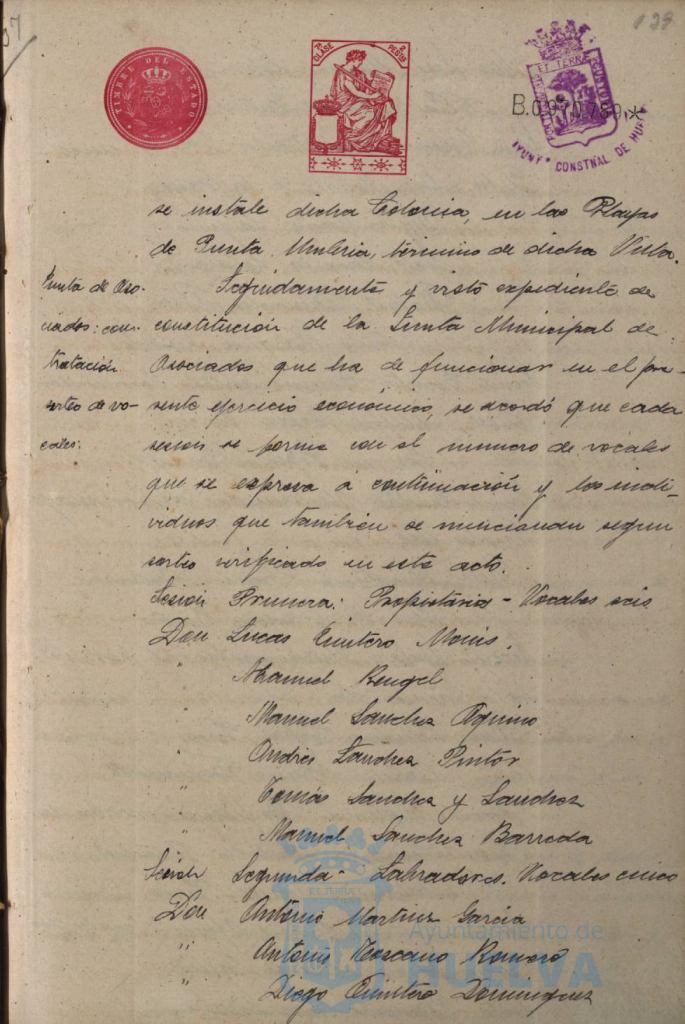 139
TIMBRE DEL ESTADO
7ª CLASE 2 PESETAS
B.0970789,*
AYUNTº CONSTNAL DE HUELVA
se instale dicha Colonia, en las Playas
de Punta Umbria, término de dicha Villa.
Junta de Aso-
ciados: con-
tratación
sorteo de vo-
cales:
Seguidamente y visto expediente de
constitución de la Junta Municipal de
Asociados que ha de funcionar en el pre-
sente ejercicio económico, se acordó que cada
sesion se forme con el numero de vocales
que se expresa á continuación y los indi-
viduos que también se mencionan segun
sorteo verificado en este acto.
Sesion Primera: Propietarios - Vocales seis
Don Lucas Quintero Monis.
" Manuel Rengel
" Manuel Sanchez Aquino
" Andrés Sanchez Pintor
" Tomás Sanchez y Sanchez
" Manuel Sanchez Barreda
Sesion Segunda - Labradores. Vocales cinco
Don Antonio Martinez Garcia
" Antonio Toscano Romero
" Diego Quintero Dominguez
Ayuntamiento de
HUELVA